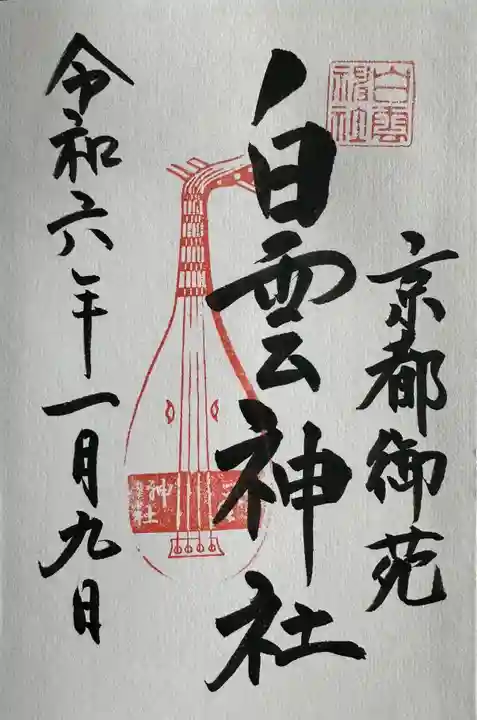 白雲神社
京都御苑
白雲神社
神社
令和六年一月九日